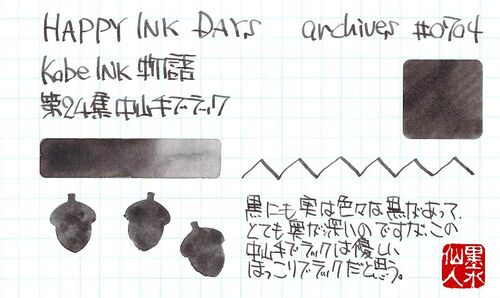 HAPPY INK DAYS archives #0704
Kobe INK 物語
第24集 中山手ブラック
黒にも実は色々な黒があって、
とても奥が深いのですな。この
中山手ブラックは優しい
ほっこりブラックだと思う。
墨水
仙人